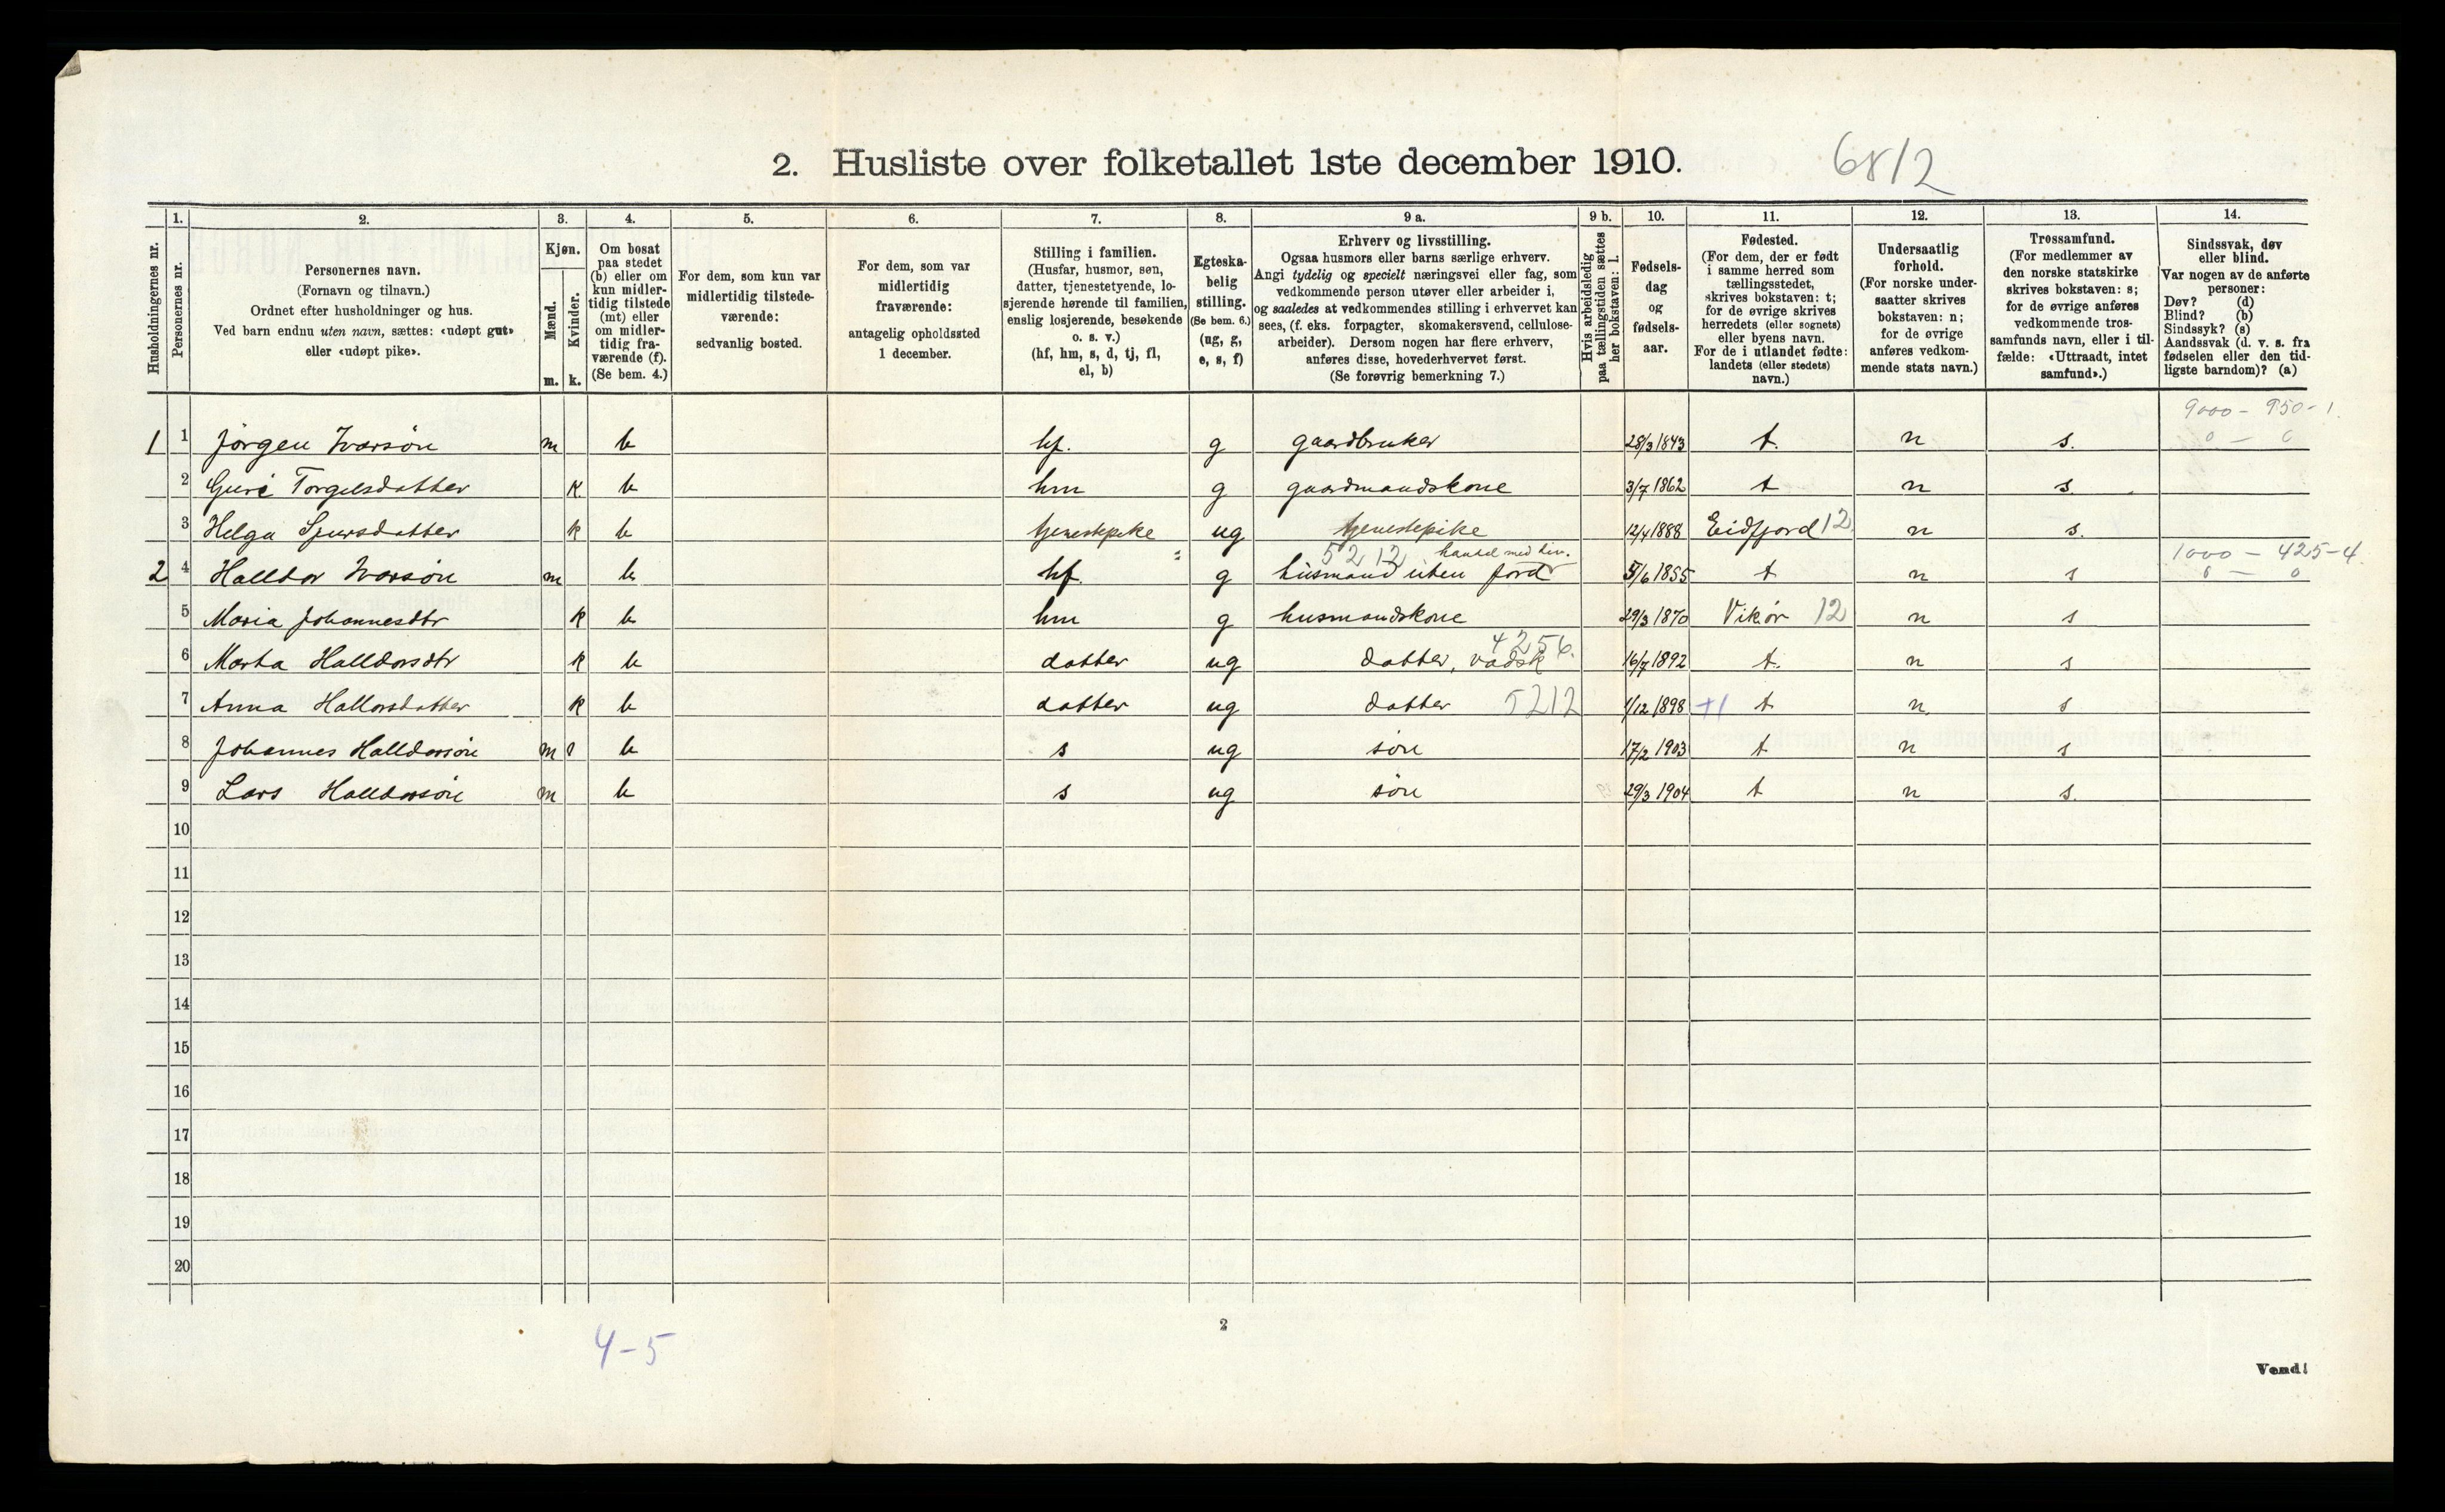 2. Husliste over folketallet 1ste december 1910.
6812
Husholdningernes nr.
1.
Personernes nr.
2.
Personernes navn.
(Fornavn og tilnavn.)
Ordnet efter husholdninger og hus.
Ved barn endnu uten navn, sættes: «udøpt gut»
eller «udøpt pike».
3.
Kjøn.
Mænd.
Kvinder.
m. k.
4.
Om bosat
paa stedet
(b) eller om
kun midler-
tidig tilstede
(mt) eller
om midler-
tidig fra-
værende (f).
(Se bem. 4.)
5.
For dem, som kun var
midlertidig tilstede-
værende:
sedvanlig bosted.
6.
For dem, som var
midlertidig
fraværende:
antagelig opholdssted
1 december.
7.
Stilling i familien.
(Husfar, husmor, søn,
datter, tjenestetyende, lo-
sjerende hørende til familien,
enslig losjerende, besøkende
o. s. v.)
(hf, hm, s, d, tj, fl,
el, b)
8.
Egteska-
belig
stilling.
(Se bem. 6.)
(ug, g,
e, s, f)
9 a.
Erhverv og livsstilling.
Ogsaa husmors eller barns særlige erhverv.
Angi tydelig og specielt næringsvei eller fag, som
vedkommende person utøver eller arbeider i,
og saaledes at vedkommendes stilling i erhvervet kan
sees, (f. eks. forpagter, skomakersvend, cellulose-
arbeider). Dersom nogen har flere erhverv,
anføres disse, hovederhvervet først.
(Se forøvrig bemerkning 7.)
9 b.
Hvis arbeidsledig
paa tællingstiden sættes
her bokstaven: l.
10.
Fødsels-
dag
og
fødsels-
aar.
11.
Fødested.
(For dem, der er født
i samme herred som
tællingsstedet,
skrives bokstaven: t;
for de øvrige skrives
herredets (eller sognets)
eller byens navn.
For de i utlandet fødte:
landets (eller stedets)
navn.)
12.
Undersaatlig
forhold.
(For norske under-
saatter skrives
bokstaven: n;
for de øvrige
anføres vedkom-
mende stats navn.)
13.
Trossamfund.
(For medlemmer av
den norske statskirke
skrives bokstaven: s;
for de øvrige anføres
vedkommende tros-
samfunds navn, eller i til-
fælde: «Uttraadt, intet
samfund».)
14.
Sindssvak, døv
eller blind.
Var nogen av de anførte
personer:
Døv? (d)
Blind? (b)
Sindssyk? (s)
Aandssvak (d. v. s. fra
fødselen eller den tid-
ligste barndom)? (a)
9000 - 950 - 1.
1 1 Jørgen Ivarsøn m b hf. g gaardbruker 28/3 1843 t. n s. 0 - 0
2 Guri Torgilsdatter k b hm g gaardmandskone 3/7 1862 t n s.
3 Helga Sjursdatter k b tjenestepike ug tjenestepike 12/4 1888 Eidfjord 12 n s.
5212 handel med
1000 - 425-4
2 4 Halldor Ivarsøn m b hf g husmand uten jord 5/6 1855 t n s 0 - 0
5 Maria Johannesdtr k b hm g husmandskone 29/3 1870 Vikør 12 n s
4256.
6 Marta Halldorsdtr k b datter ug datter, vadsk 16/7 1892 t. n s
7 Anna Hallorsdatter k b datter ug datter 5212 1/12 1898 +1 t n s
8 Johannes Halldorsøn m b s ug søn 17/2 1903 t n s
9 Lars Halldorsøn m b s ug søn 29/3 1904 t n s.
10
11
12
13
14
15
16
17
18
19
20
4-5
2
Vend!